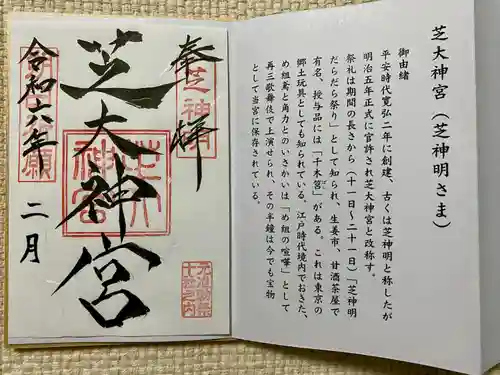 芝大神宮（芝神明さま）
御由緒
平安時代寛弘二年に創建、古くは芝神明と称したが
明治五年正式に官許され芝大神宮と改称す。
祭礼は期間の長さから（十一日～二十一日）「芝神明
だらだら祭り」として知られ、生姜市、甘酒茶屋で
有名、授与品には「千木筥」がある。これは東京の
郷土玩具としても知られている。江戸時代境内でおきた、
め組鳶と角力とのいさかいは「め組の喧嘩」として
再三歌舞伎で上演せられ、その半鐘は今でも宝物
として当宮に保存されている。
奉拝
芝神明
芝大神宮
芝大神宮
令和六年
願
二月